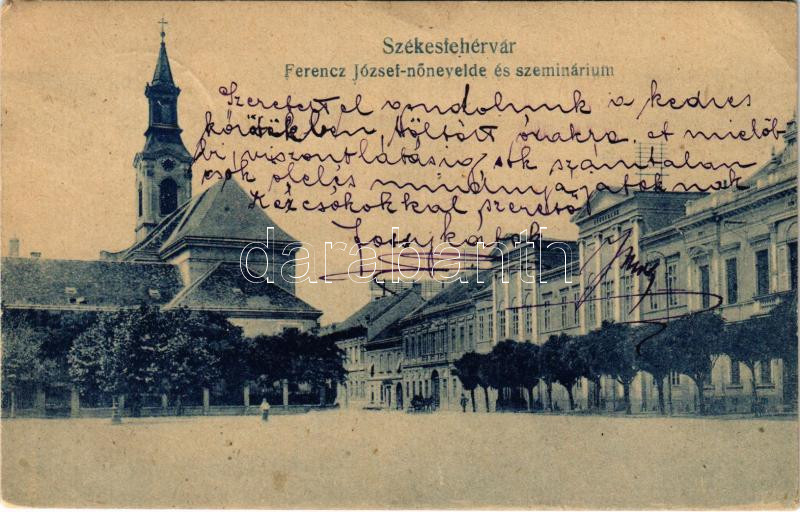 Székesfehérvár
Ferencz József-nőnevelde és szeminárium
Szeretettel gondolunk a kedves
körötökben töltött órákra, et mielőb
bi viszontlátásig sok számtalan
csok ölelés mindnyájatoknak
Kézcsókokkal szerető
darabanth.com